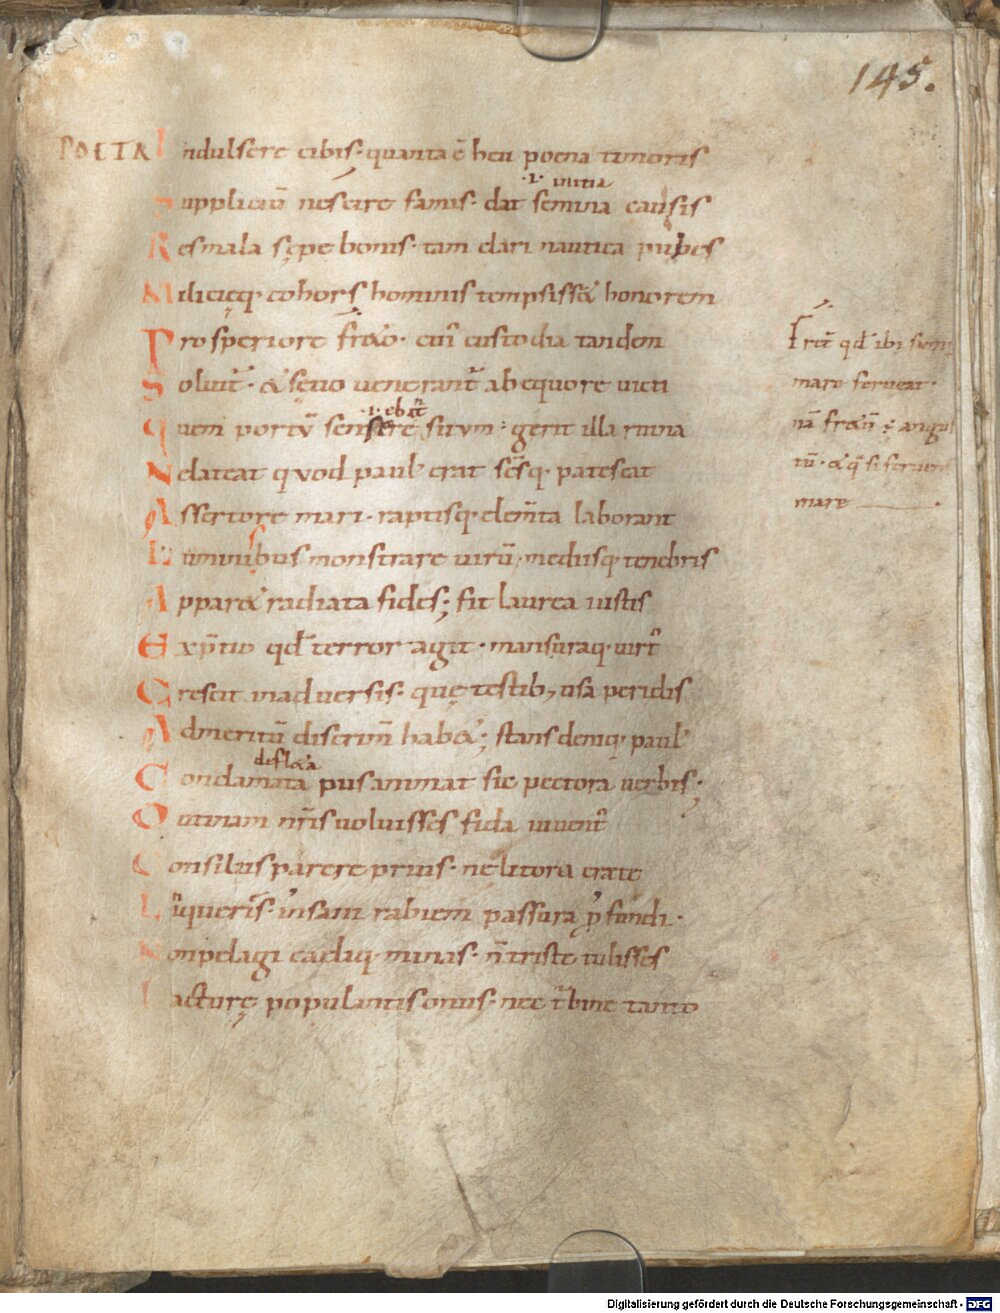 145.
POETA Indulsere cibis· quanta ē heu poena timoris
·i· initia
Suppliciū nescire famis· dat semina causis
Res mala sępe bonis· tam clari nautica pubes
Milicięq· cohors hominis tempsisse honorem
Prosperiore freto· cui custodia tandem
Soluit̄· & seuo uenerant̄ ab equore uicti
Quem portū sensere suum· gerit illa ruina
Ne lateat quod paul' erat scīsq· patescat
Assertore mari· raptisq· elem̄ta laborant
Luminibus monstrare uirū· mediisq· tenebris
Apparet radiata fides; fit laurea iustis
Exp̄tio qd̄ terror agit· mansuraq· uirt'
Crescit in aduersis· quę testib; usa periclis
Ad meritū discrim̄ habet; stans deniq· paul'
Conclamata
pus animat sic pectora uerbis·
O utinam nr̄is uoluisses fida iuuent'
Consiliis parere prius· ne litora crete
Liqueris· insani rabiem passura p̄fundi·
Non pelagi caeliq· minas· n̄ triste tulisses
Iacturę populantis onus· nec t'bine tanto
Fret' qd̄ ibi semp
mare ferueat·
nā fretū ÷ angus
tū· & q̄si feruens
mare